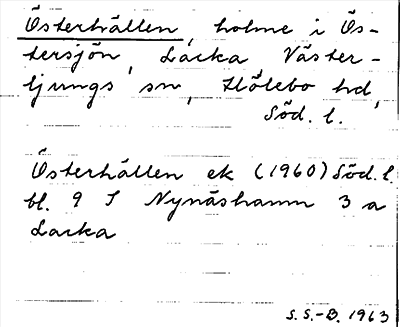 Österhällen, holme i Ös-
tersjön, Lacka, Väster-
ljungs sn, Hölebo hd,
Söd. l.
Österhällen ek (1960) Söd. l.
bl. 9 I Nynäshamn 3 a
Lacka
S.S.-B. 1963